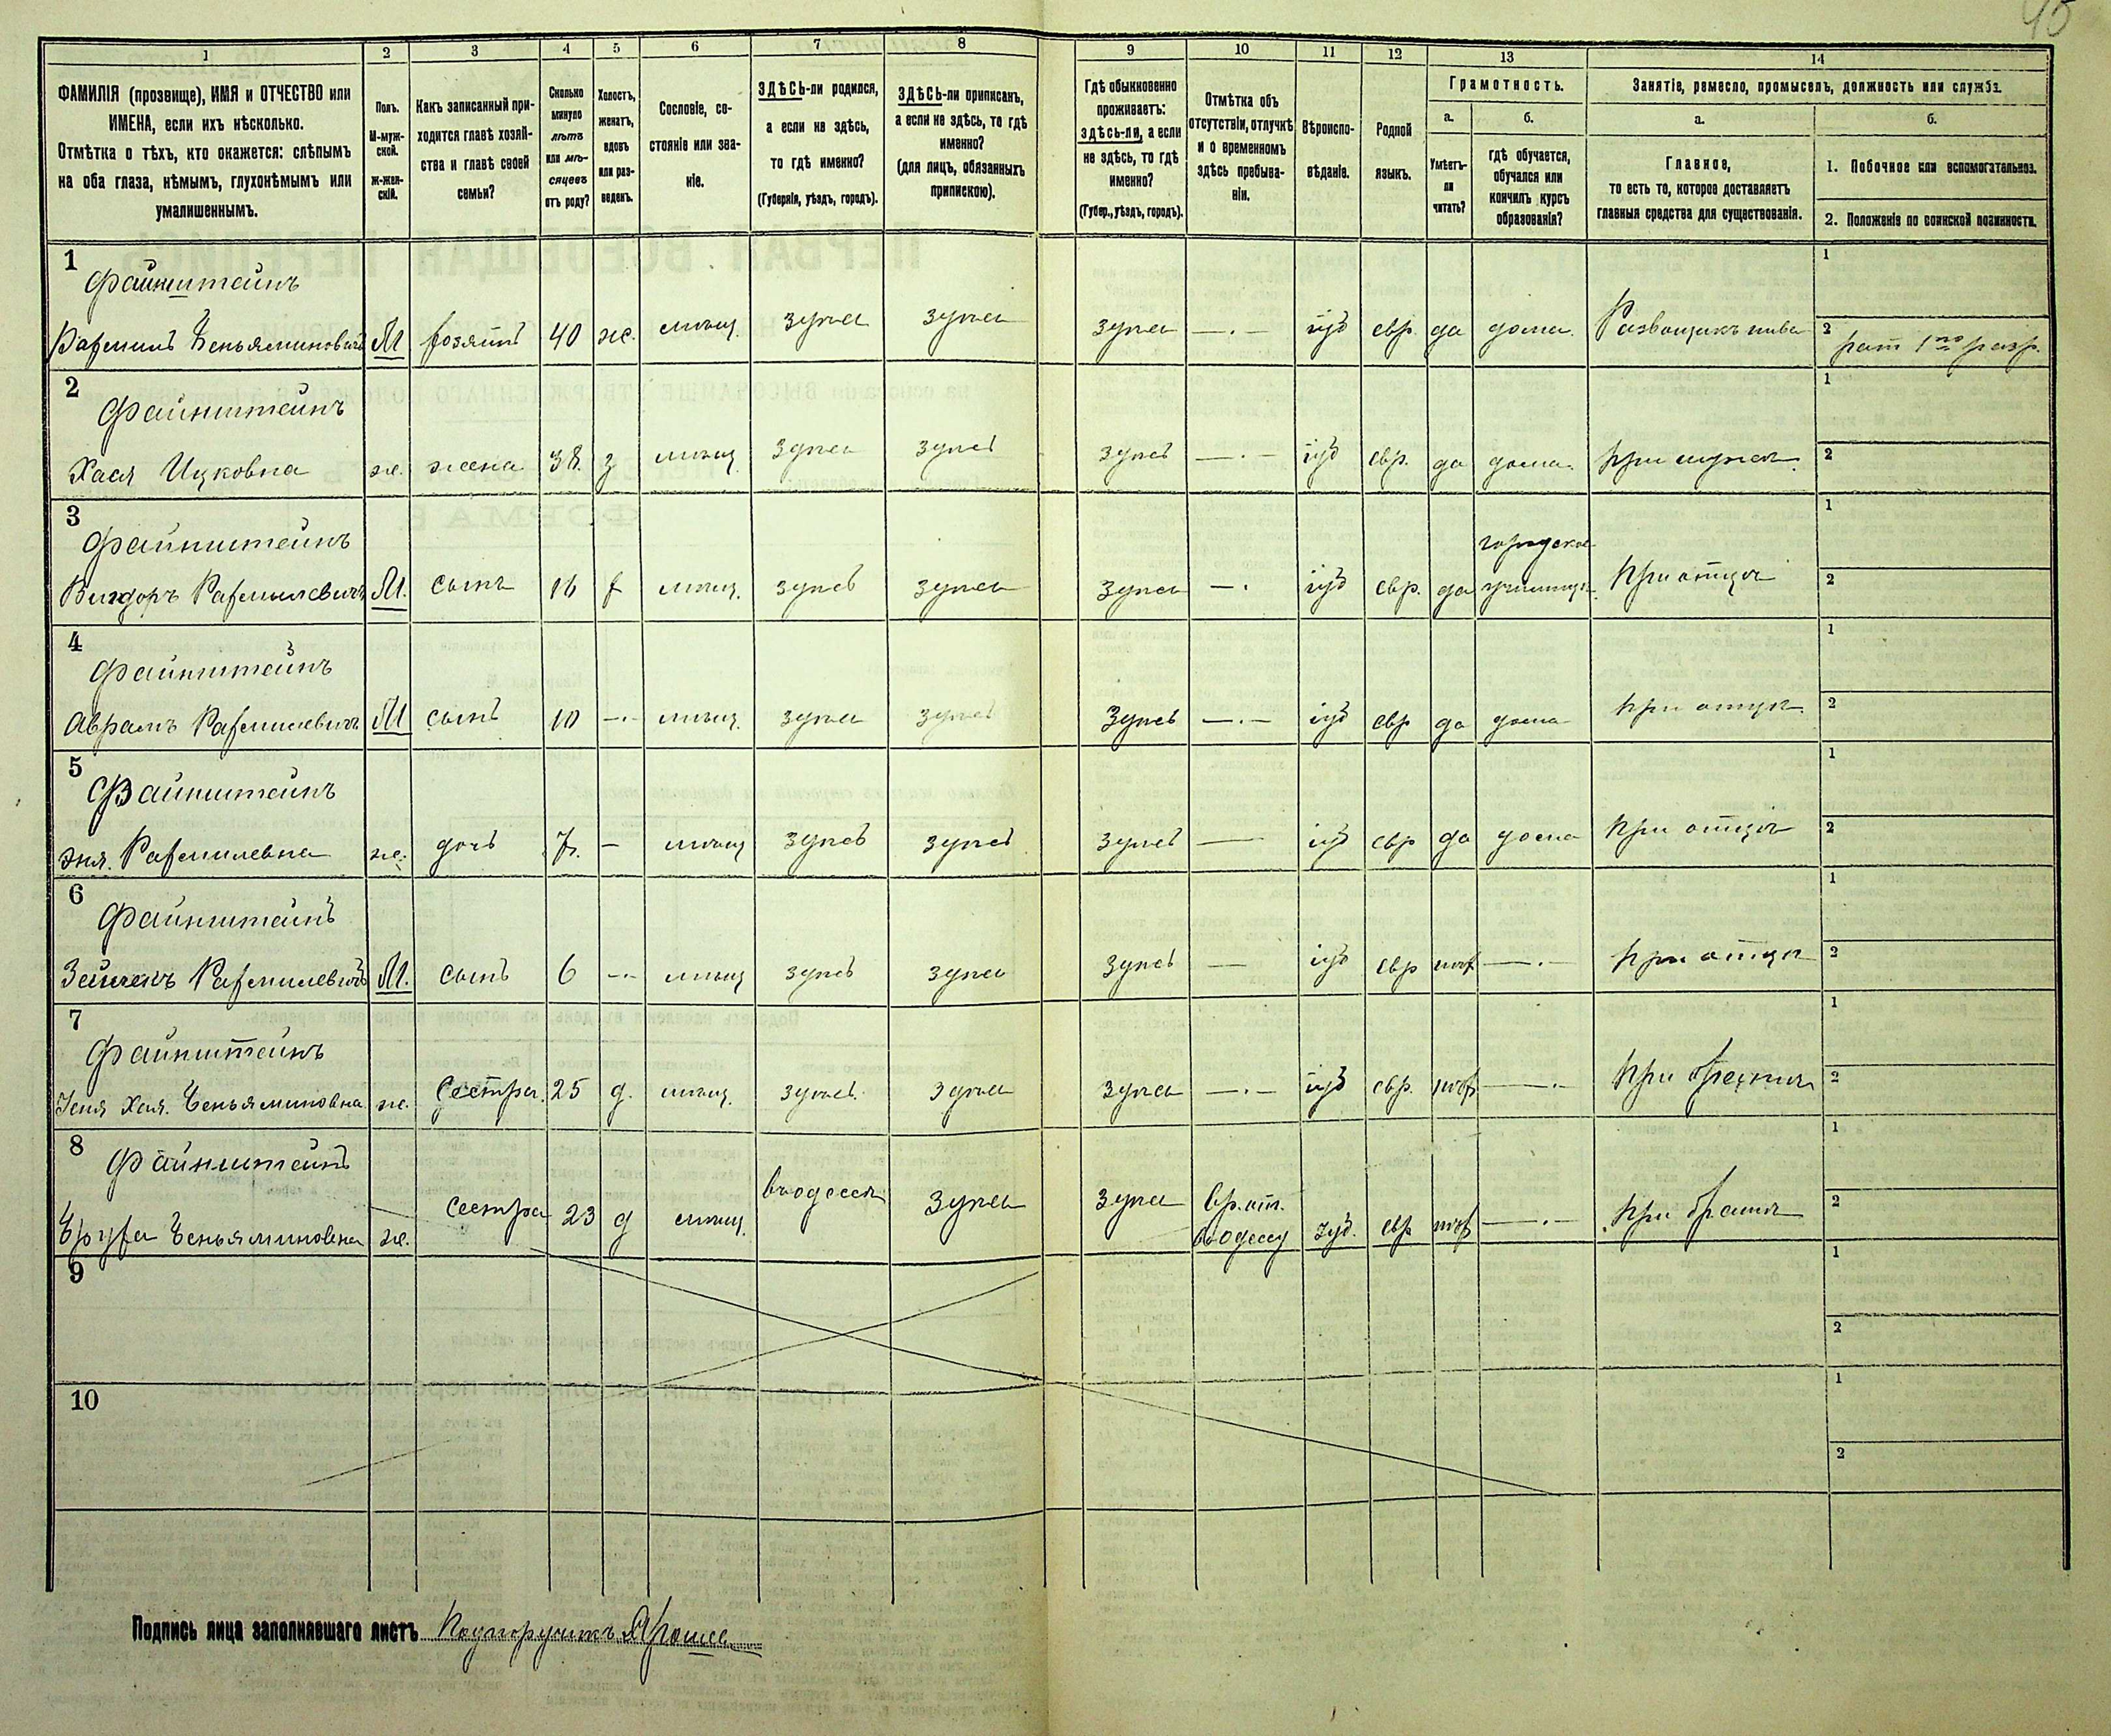 45
1 2 3 4 5 6 7 8 9 10 11 12 13 14
ФАМИЛІЯ (прозвище), ИМЯ и ОТЧЕСТВО или
ИМЕНА, если ихъ нѣсколько.
Отмѣтка о тѣхъ, кто окажется: слѣпымъ
на оба глаза, нѣмымъ, глухонѣмымъ или
умалишеннымъ.
Полъ.
М-муж-
ской.
Ж-жен-
скій.
Какъ записанный при-
ходится главѣ хозяй-
ства и главѣ своей
семьи?
Сколько
минуло
лѣтъ
или мѣ-
сяцевъ
отъ роду?
Холостъ,
женатъ,
вдовъ
или раз-
веденъ.
Сословіе, со-
стояніе или зва-
ніе.
ЗДѢСЬ-ли родился,
а если не здѣсь,
то гдѣ именно?
(Губернія, уѣздъ, городъ).
ЗДѢСЬ-ли приписанъ,
а если не здѣсь, то гдѣ
именно?
(для лицъ, обязанныхъ
припискою).
Гдѣ обыкновенно
проживаетъ:
здѣсь-ли, а если
не здѣсь, то гдѣ
именно?
(Губер., уѣздъ, городъ).
Отмѣтка объ
отсутствіи, отлучкѣ
и о временномъ
здѣсь пребыва-
ніи.
Вѣроиспо-
вѣданіе.
Родной
языкъ.
Грамотность.
а.
Умѣетъ-
ли
читать?
б.
гдѣ обучается,
обучался или
кончилъ курсъ
образованія?
Занятіе, ремесло, промыселъ, должность или служба.
а.
Главное,
то есть то, которое доставляетъ
главныя средства для существованія.
б.
1. Побочное или вспомогательное.
2. Положеніе по воинской повинности.
1
Файнштейнъ
Рафаилъ Беньяминовичъ М хозяинъ 40 ж. мѣщ. здѣсь здѣсь здѣсь —.— іуд евр. да дома. Развощикъ пива
1
2 рат 1го разр.
2
Файнштейнъ
Хася Ицковна ж. жена 38. з мѣщ. здѣсь здѣсь здѣсь —.— іуд евр. да дома. при мужѣ.
1
2
3
Файнштейнъ
Вигдоръ Рафаиловичъ М. сынъ 16 х мѣщ. здѣсь здѣсь здѣсь —. іуд евр. да городское училище при отцѣ
1
2
4
Файнштейнъ
Аврамъ Рафаиловичъ М сынъ 10 —.— мѣщ. здѣсь здѣсь здѣсь —.— іуд евр да дома при отцѣ.
1
2
5
Файнштейнъ
Эня. Рафаиловна ж. дочь 7. — мѣщ здѣсь здѣсь здѣсь — іуд евр да дома при отцѣ
1
2
6
Файнштейнъ
Рафаиловичъ М. сынъ 6 —.— мѣщ здѣсь здѣсь здѣсь — іуд евр —.— при отцѣ
1
2
7
Файнштейнъ
Хая. Беньяминовна ж. Сестра. 25 д. мѣщ. здѣсь здѣсь здѣсь —.— іуд евр. —.
1
2
8
Файнштейнъ
Беньяминовна ж. сестра 23 д мѣщ. въ одессѣ здѣсь здѣсь Вр. от. въ одессу іуд. евр —.— при братѣ
1
2
9
1
2
10
1
2
Подпись лица заполнявшаго листъ